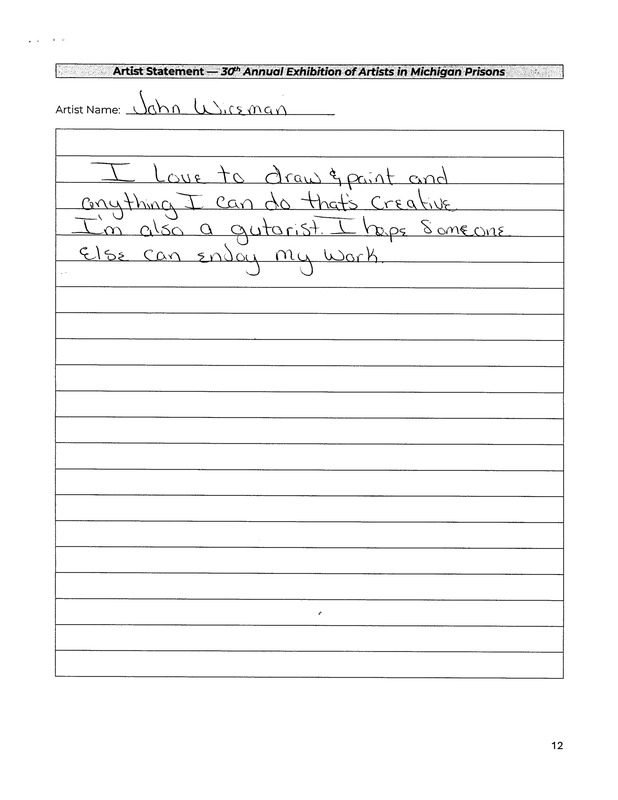 Artist Statement — 30th Annual Exhibition of Artists in Michigan Prisons
Artist Name: John Wiseman
I Love to draw & paint and
anything I can do that's Creative
I'm also a gutarist. I hope Someone
Else can enjoy my work.
12